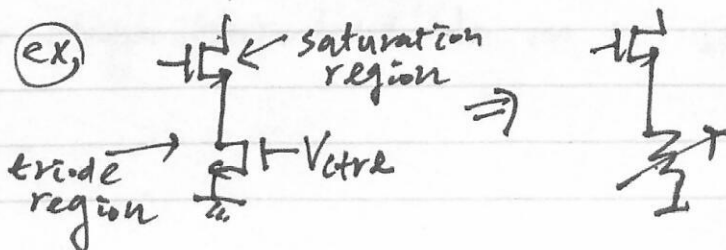 ex,
saturation
region
⇒
triode
region
Vctrl